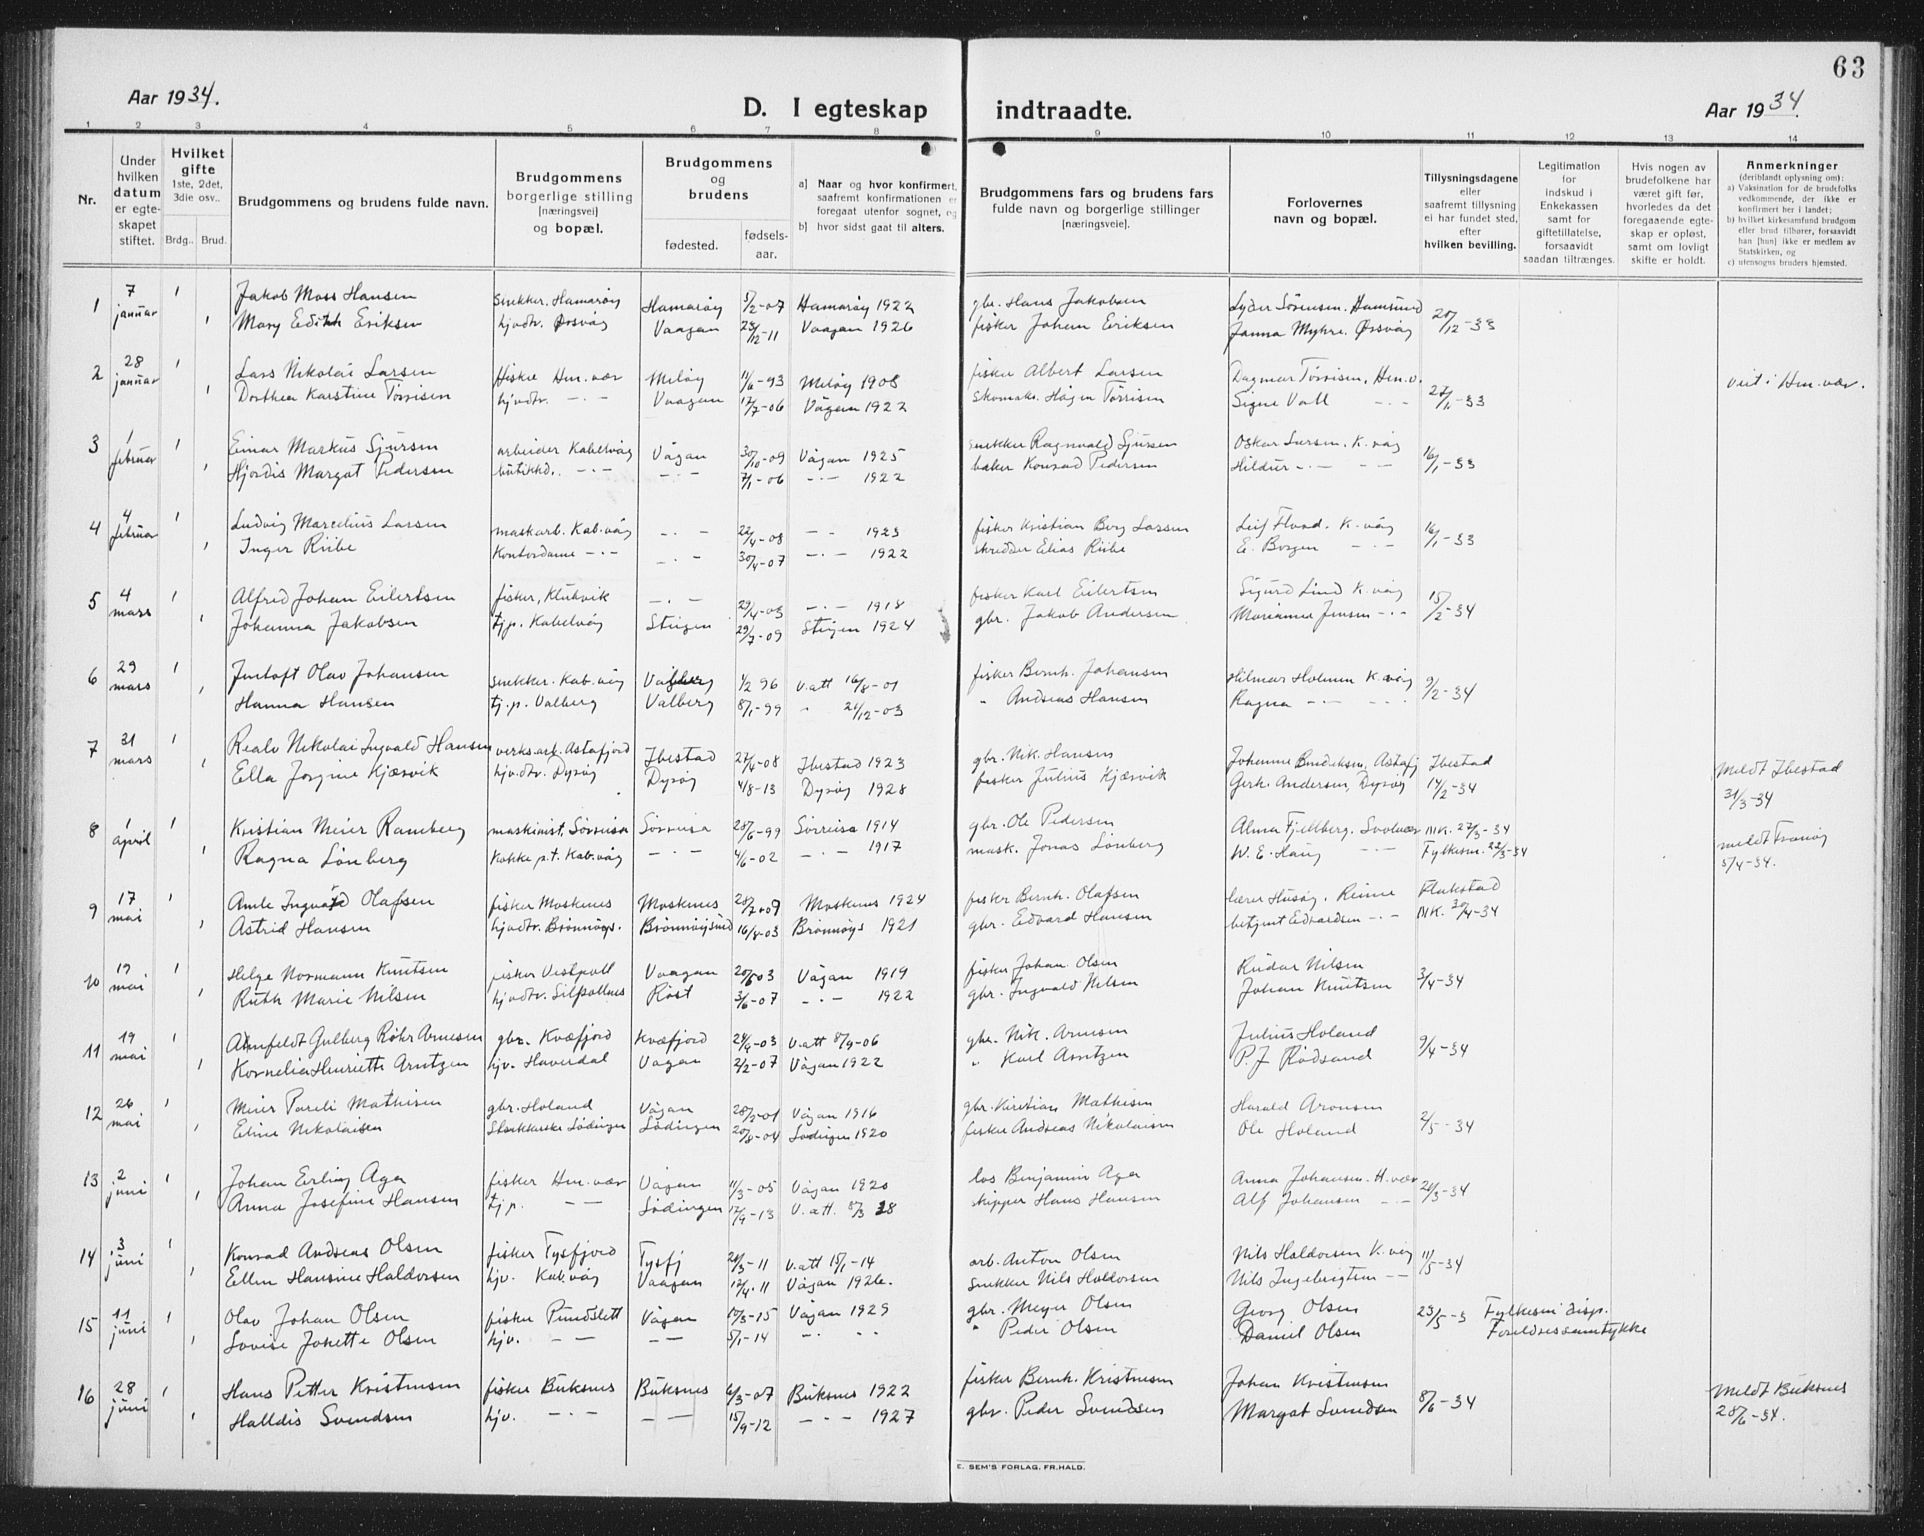 63
Aar 1934.
D. I egteskap indtraadte.
Aar 1934.
1 2 3 4 5 6 7 8 9 10 11 12 13 14
Nr.
Under hvilken datum er egteskapet stiftet.
Hvilket gifte 1ste, 2det, 3die osv.. Brdg.. Brud.
Brudgommens og brudens fulde navn.
Brudgommens borgerlige stilling [næringsvei] og bopæl.
Brudgommens og brudens fødested. fødsels-aar.
a) Naar og hvor konfirmert, saafremt konfirmationen er foregaat utenfor sognet, og
b) hvor sidst gaat til alters.
Brudgommens fars og brudens fars fulde navn og borgerlige stillinger [næringsveie].
Forlovernes navn og bopæl.
Tillysningsdagene eller saafremt tillysning ei har fundet sted, efter hvilken bevilling.
Legitimation for indskud i Enkekassen samt for giftetillatelse, forsaavidt saadan tiltrænges.
Hvis nogen av brudefolkene har været gift før, hvorledes da det foregaaende egteskap er opløst, samt om lovligt skifte er holdt.
Anmerkninger (deriblandt oplysning om):
a) Vaksination for de brudefolks vedkommende, der ikke er konfirmert her i landet;
b) hvilket kirkesamfund brudgom eller brud tilhører, forsaavidt han [hun] ikke er medlem av Statskirken, og
c) utensogns bruders hjemsted.
1 7 januar 1 Jakob Moss Hansen snekker. Hamarøy Hamarøy 5/2-07 Hamarøy 1922 gbr. Hans Jakobsen Lyder Sørensen. Hamsund 20/12-33
1 Mary Edith Eriksen hjvdtr. Ørsvåg Vaagan 23/12-11 Vaagan 1926 fisker Johan Eriksen Janna Myhre. Ørsvåg
2 28 januar 1 Lars Nikolai Larsen fisker Hn.vær Meløy 11/6-93 Meløy 1908 fisker Albert Larsen Dagmar Tørrisen, Hn.v. 27/1-33 viet i Hn.vær.
1 Dorthea Karstine Tørrisen hjvdtr. -·- Vaagan 12/7-06 Vågan 1922 Skomak. Hågen Tørrisen Signe Vall -·-
3 1 februar 1 Einar Markus Sjursen arbeider Kabelvåg Vågan 30/10-09 Vågan 1925 snekker Ragnvald Sjursen Oskar Larsen. K.våg 16/1-33
1 Hjørdis Margot Pedersen butikkd. -·- -·- 7/1-06 -·- 1922 baker Konrad Pedersen Hildur -·- -·-
4 4 februar 1 Ludvig Marcelius Larsen maskarb. Kab.våg -·- 22/4-08 -·- 1923 fisker Kristian Berg Larsen Leif Flood. K.våg 16/1-33
1 Inger Riibe Kontordame -·- -·- 30/4-07 -·- 1922 skredder Elias Riibe E. Borgen -·-
5 4 mars 1 Alfred Johan Eilertsen fisker, Klukvik -·- 29/4-03 -·- 1918 fisker Karl Eilertsen Sigurd Lind K.våg 15/2-34
1 Johanna Jakobsen tjp. Kabelvåg Steigen 29/7-09 Steigen 1924 gbr. Jakob Andersen Marianne Jensen -·-
6 29 mars 1 Jentoft Olav Johansen snekker. Kab.våg Valberg 1/2 96 v.att 16/8-01 fisker Bernh. Johansen Hilmar Holmen K.våg 9/2-34
1 Hanna Hansen tj.p. Valberg Valberg 8/1-99 " 21/12-03 " Andreas Hansen Ragna -·- -·-
7 31 mars 1 Realv Nikolai Ingvald Hansen verks.arb. Astafjord Ibestad 27/4-08 Ibestad 1923 gbr. Nik. Hansen Johanne Bendiksen, Astafj Ibestad 14/2-34 Meldt Ibestad 31/3-34
1 Ella Jorgine Kjærvik hjv.dtr. Dyrøy Dyrøy 4/8-13 Dyrøy 1928 fisker Julius Kjærvik Gerh. Andersen, Dyrøy
8 1 april 1 Kristian Meier Ramberg maskinist, Sørreisa Sørreisa 28/6-99 Sørreisa 1914 gbr. Ole Pedersen Alma Fjellberg. Svolvær 27/3-34 meldt Tranøy 5/4-34.
1 Ragna Lønberg Kokke p.t. Kab.våg -·- 4/6-02 -·- 1917 mask. Jonas Lønberg W. E. Haug -·- Fylkesm. 22/3-34
9 17 mai 1 Arnle Ingvald Olafsen fisker Moskenes Moskenes 28/7-09 Moskenes 1924 fisker Bernh. Olafsen lærer Husøy, Reine Flakstad
1 Astrid Hansen hjvdtr. Brønnøys. Brønnøysund 16/8-03 Brønnøys 1921 gbr. Edvard Hansen betjent Edvardsen -·- 30/4-34
10 19 mai 1 Helge Normann Knutsen fisker Vestpoll Vaagan 20/5 03 Vågan 1919 fisker Johan Olsen Rudar Nilsen 3/4-34
1 Ruth Marie Nilsen hjvdtr. Silpollnes Røst 3/6-07 -·- 1922 gbr. Ingvald Nilsen Johan Knutsen
11 19 mai 1 Arnfeldt Gulberg Røhr Arnesen gbr. Kvæfjord Kvæfjord 24/9-03 v.att 8/9-06 gbr. Nik. Arnesen Julius Holand 9/4-34
1 Kornelia Henriette Arntzen hjv. Haverdal Vågan 2/2-07 Vågan 1922 " Karl Arntzen P. J. Rødsand
12 26 mai 1 Meier Pareli Mathisen gbr. Holand Vågan 28/2-01 Vågan 1916 gbr. Kristian Mathisen Harald Aronsen 2/5-34
1 Eline Nikolaisen Lødingen Lødingen 20/8-04 Lødingen 1920 fisker Andreas Nikolaisen Ole Holand
13 2 juni 1 Johan Erling Aga fisker Hn.vær Vågan 11/3-05 Vågan 1920 los Benjamin Aga Anna Johansen. H.vær 26/3-34
1 Anna Josefine Hansen tjp. -- Lødingen 12/9-13 V.att. 8/3 28 skipper Hans Hansen Alf Johansen -·-
14 3 juni 1 Konrad Andreas Olsen fisker Tysfjord Tysfj 21/3-11 v.att 15/1-14 arb. Anton Olsen Nils Haldorsen K.våg 11/5-34
1 Ellen Hansine Haldorsen hjv. Kab.våg Vaagan 12/4.11 Vågan 1926. Snekker Nils Haldorsen Nils Ingebrigtsen --
15 11 juni 1 Olav Johan Olsen fisker Pundslett Vågan 10/3-15 Vågan 1929 gbr. Meyer Olsen Georg Olsen 23/5-3 Fylkesm disp.
1 Lovise Johette Olsen hjv. -- -- 5/1-14 -·- " Peder Olsen Daniel Olsen Foreldresamtykke
16 28 juni 1 Hans Petter Kristensen fisker Buksnes Buksnes 6/3-07 Buksnes 1922 fisker Bernh. Kristensen Johan Kristensen 8/6-34 Meldt Buksnes 28/6-34.
1 Halldis Svendsen hjv. -·- -- 15/9-12 -·- 1927 gbr. Peder Svendsen Margot Svendsen
E. SEM'S FORLAG, FR.HALD.